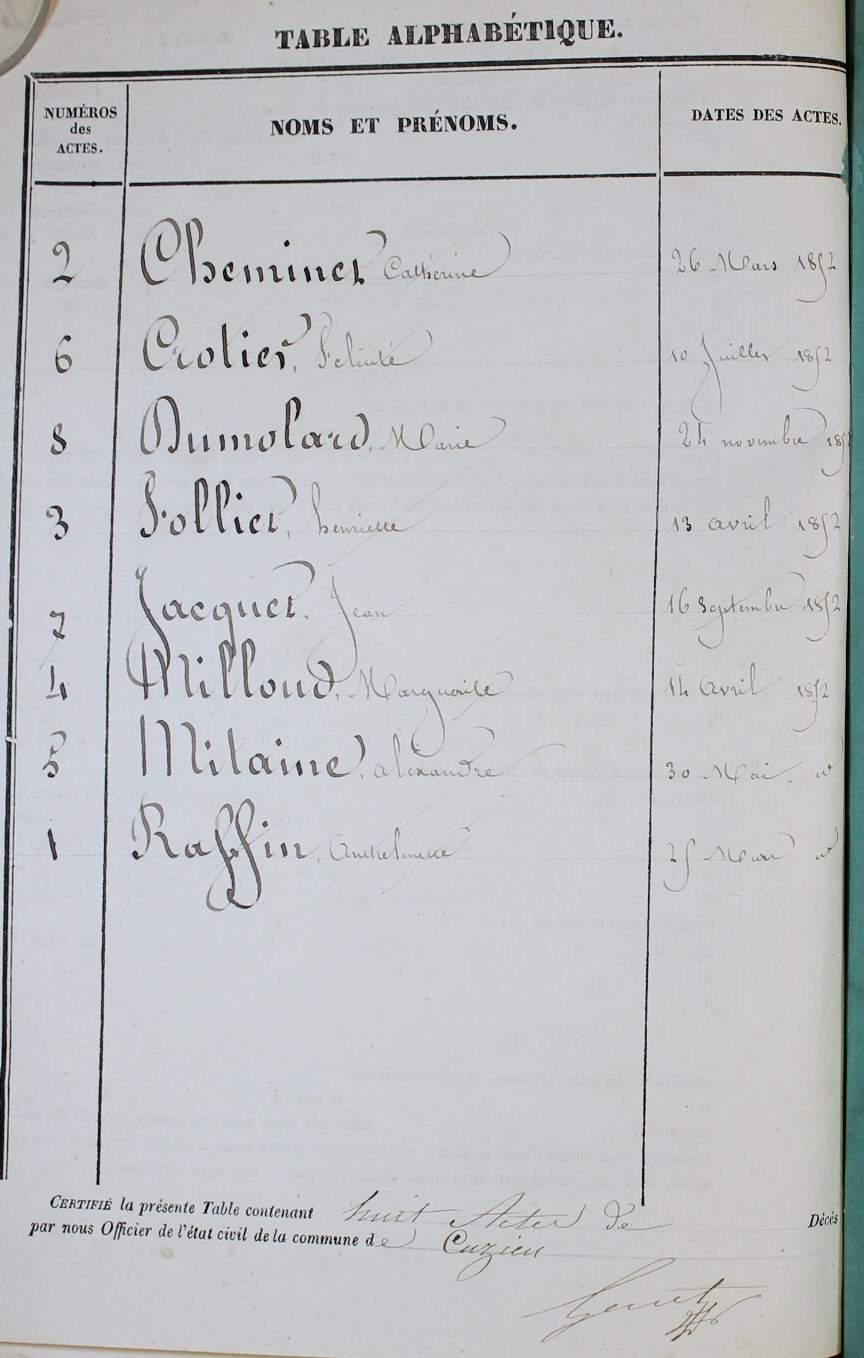 TABLE ALPHABÉTIQUE.
NUMÉROS des ACTES. NOMS ET PRÉNOMS. DATES DES ACTES.
2 Cheminet Catherine 26 Mars 1852
6 Crotier, Felicité 10 Juillet 1852
8 Dumolard, Marie 24 novembre 185
3 Folliet, henriette 13 avril 1852
7 Jacquet, Jean 16 Septembre 1852
4 Milloud, Marguerite 14 Avril 1852
5 Mitaine, alexandre 30 Mai. id
1 Raffin, Anthelmette 25 Mars id
CERTIFIÉ la présente Table contenant huit Actes de Décès
par nous Officier de l'état civil de la commune de Cuzieu